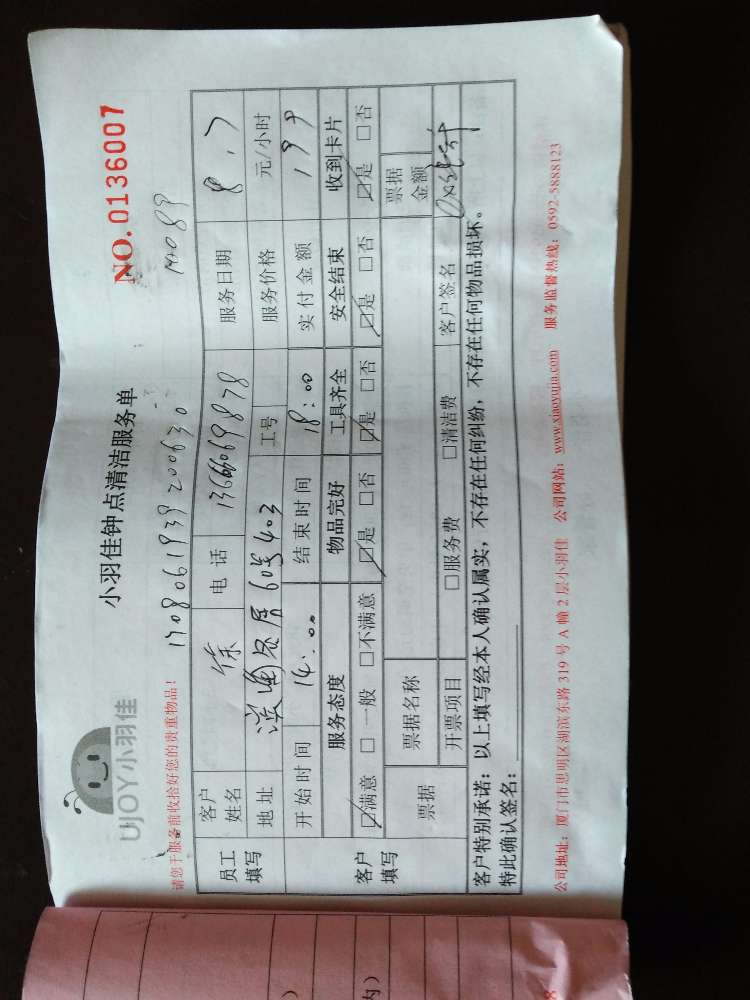 UJOY小羽佳
小羽佳钟点清洁服务单
NO.0136007
请您于服务前收拾好您的贵重物品!
1708061939200630
员工填写
客户姓名 徐 电话 13666069878 服务日期 8.7
地址 60号403 工号 服务价格 元/小时
客户填写
开始时间 14:00 结束时间 18:00 实付金额 199
服务态度 物品完好 工具齐全 安全结束 收到卡片
□满意 □一般 □不满意 □是 □否 □是 □否 □是 □否 □是 □否
票据 票据名称 票据金额
开票项目 □服务费 □清洁费 客户签名
客户特别承诺:以上填写经本人确认属实,不存在任何纠纷,不存在任何物品损坏。
特此确认签名:
公司地址:厦门市思明区湖滨东路 319 号 A 幢 2 层小羽佳 公司网站:www.xiaoyujia.com 服务监督热线:0592-5888123